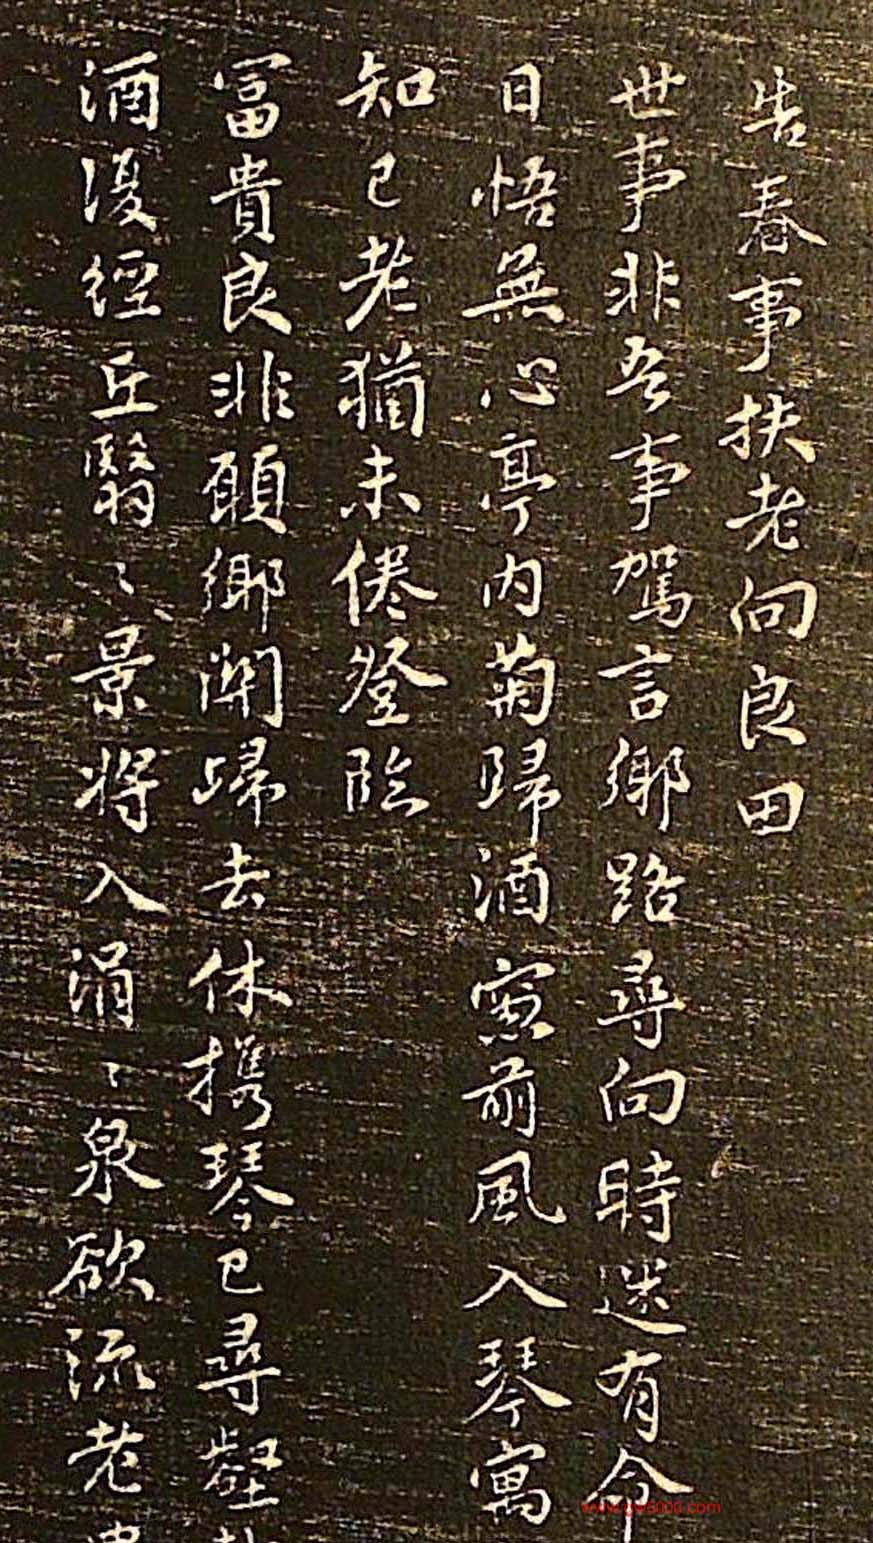 告春事扶老向良田
世事非吾事駕言鄉路尋向時迷有命
日悟無心亭内菊歸酒窓前風入琴寓
知已老猶未倦登臨
富貴良非願鄉關歸去休携琴已尋壑
酒復經丘翳〻景將入涓〻泉欲流老